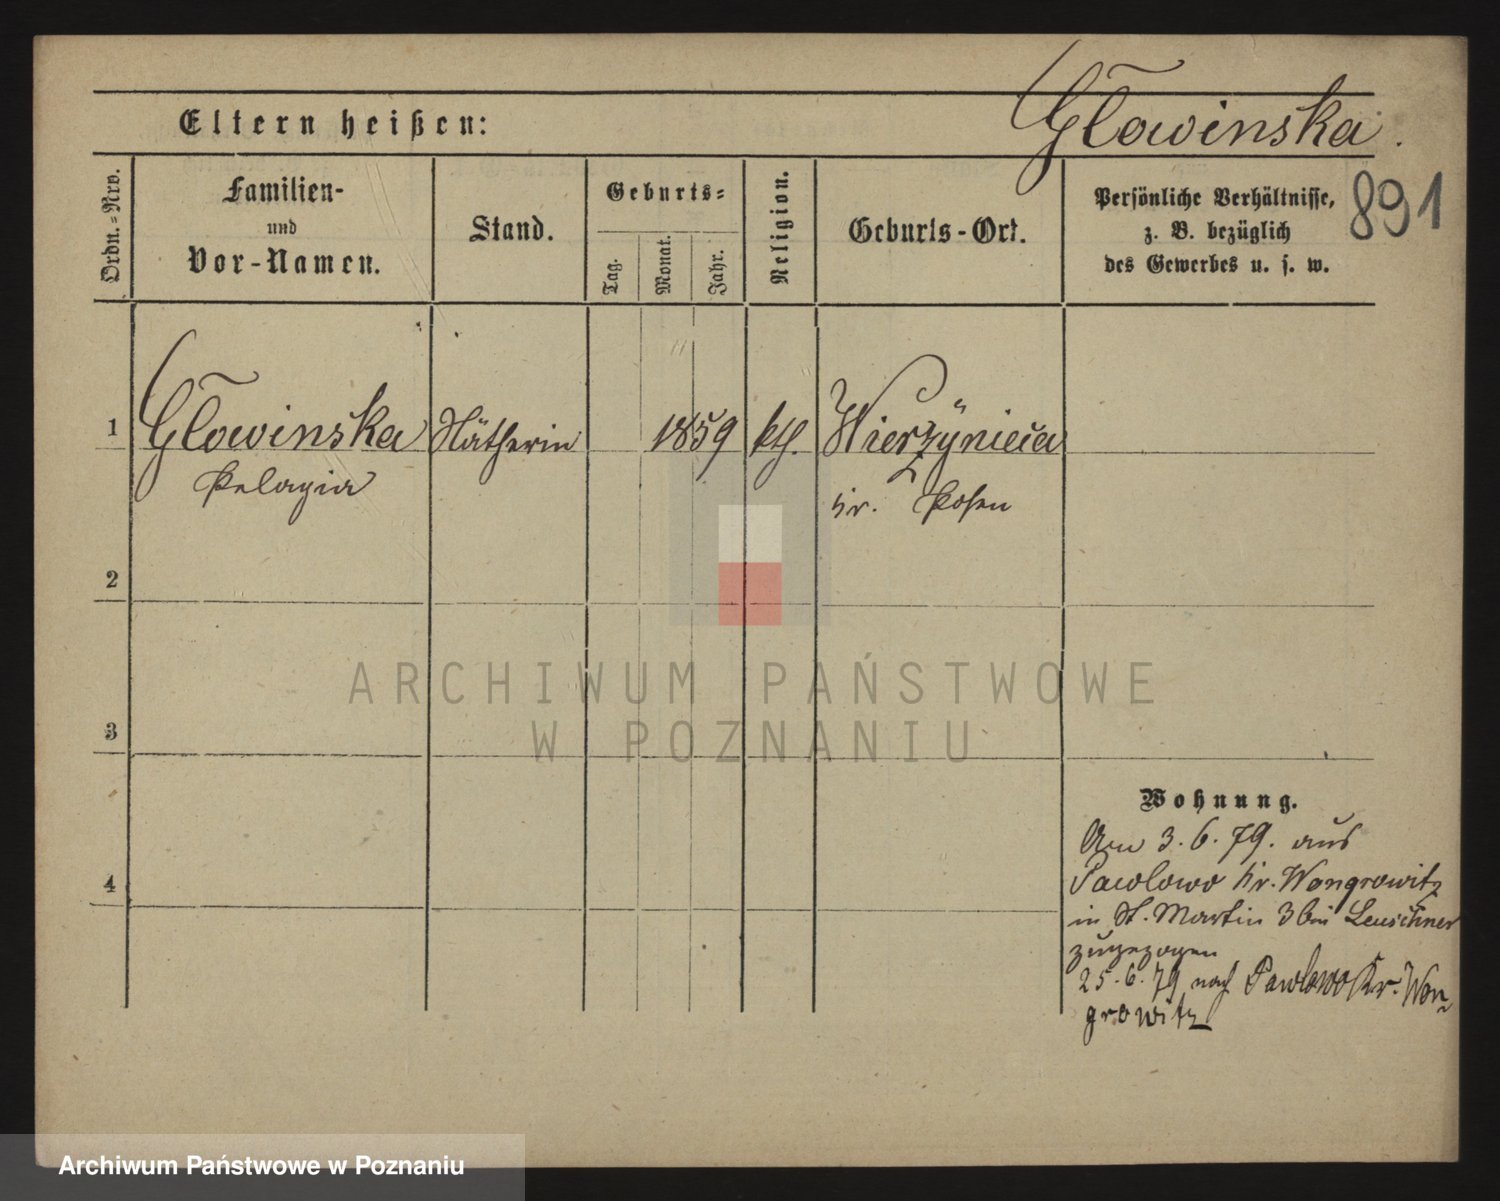 Głowinska.
Eltern heißen:
891
Ordn.-Nro.
Familien-
und
Vor-Namen.
Stand.
Geburts-
Tag.
Monat.
Jahr.
Religion.
Geburts-Ort.
Persönliche Verhältnisse,
z. B. bezüglich
des Gewerbes u. s. w.
1 Głowinska Nätherin 1859 kth. Wierzynica
Pelagia Kr. Posen
2
3
4
ARCHIWUM PAŃSTWOWE
W POZNANIU
Wohnung.
Am 3.6.79. aus
Pawlowo Kr. Wongrowitz
in St. Martin 3 bei Leuschner
zugezogen
25.6.79 nach Pawlowo Kr. Won-
growitz
Archiwum Państwowe w Poznaniu